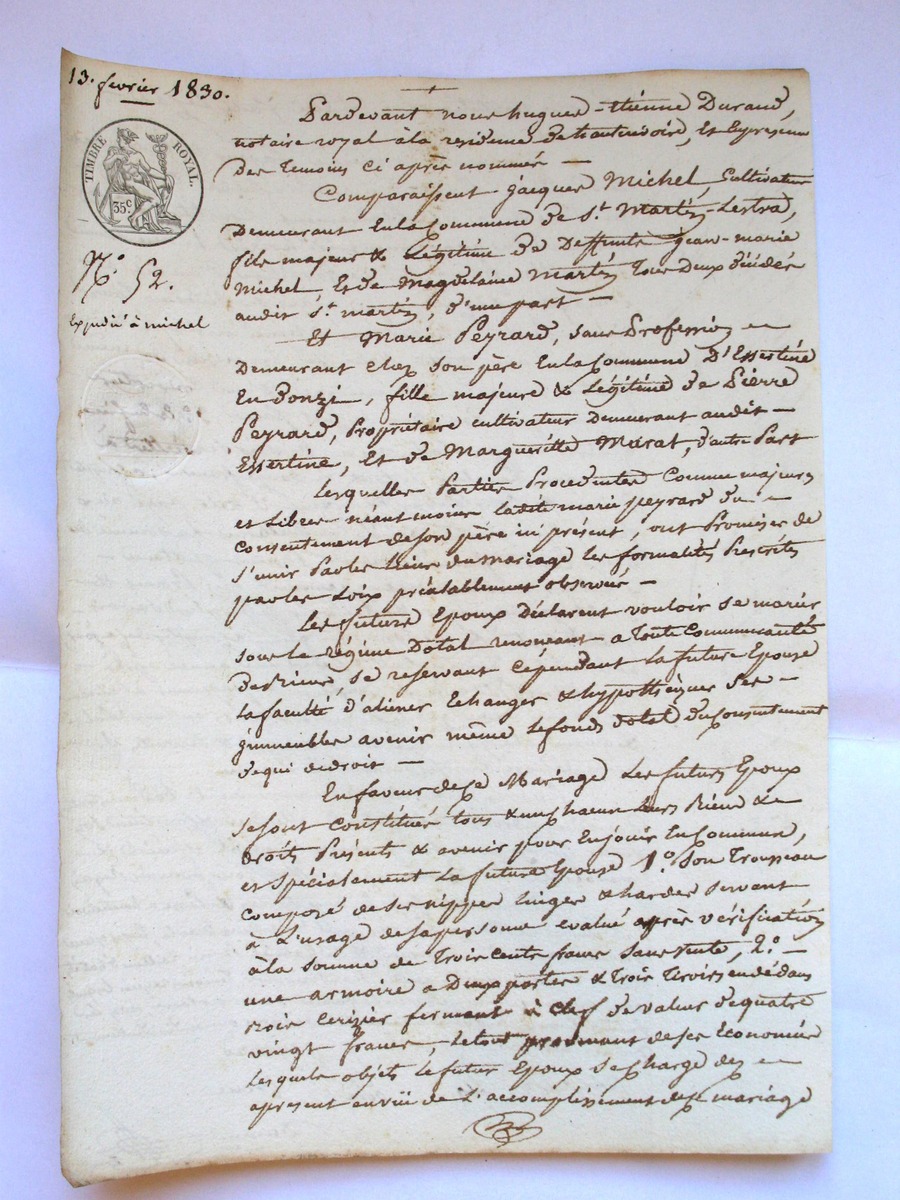 13. fevrier 1830.
TIMBRE ROYAL.
35c
N.o 52.
Expédié à michel
Pardevant nous hugues-étienne Durand,
notaire royal à la residence de hauterivoire, et En presence
des temoins ci après nommés —
Comparaissent jacques Michel, Cultivateur
demeurant En la Commune de St. Martin-Lestra,
fils majeur & Légitime de deffunts jean-marie
Michel Et de Magdelaine Martin tous deux décédés
audit St. martin, d'une part —
Et Marie Peyrard, sans Profession —
demeurant chez son père En la Commune D'Essertine
En Donzi, fille majeure & Légitime de Pierre
Peyrard, Propriétaire cultivateur demeurant audit —
Essertine, Et de Marguerille Murat, d'autre Part
Lesquelles Parties Procedentes Comme majeurs
et Libres néantmoins ladite marie peyrard du —
consentement de son père ici présent, ont Promises de
s'unir Par les Liens du mariage les formalités Prescrites
par les Loix préalablement observées —
Les futurs Epoux Déclarent vouloir se marier
sous le régime Dotal renonçant a toute Communauté
de Biens, se reservant cépendant la future Epouse
la faculté d'aliéner Echanger & hypothéquer ses —
jmmeubles avenir même le fonds dotal du consentement
de qui de droit —
En faveur de ce Mariage Les futurs Epoux
se sont constitués tous & un chacun leurs Biens &
droits Présents & avenir pour En jouir En Commun,
et spécialement la future Epouse 1.o son Trousseau
composé de ses nippes linges & hardes servant
à L'usage de sa personne evalué après vérification
à la somme de Trois cents francs sans vente, 2.o —
une armoire a Deux portes & Trois Tiroirs en dédans
bois Cerizier fermant à clef de valeur de quatre
vingt francs, le tout provenant de ses Economies
Lesquels objets Le futur Epoux se charge dez —
apresent en vüe de L'accomplissement de ce mariage